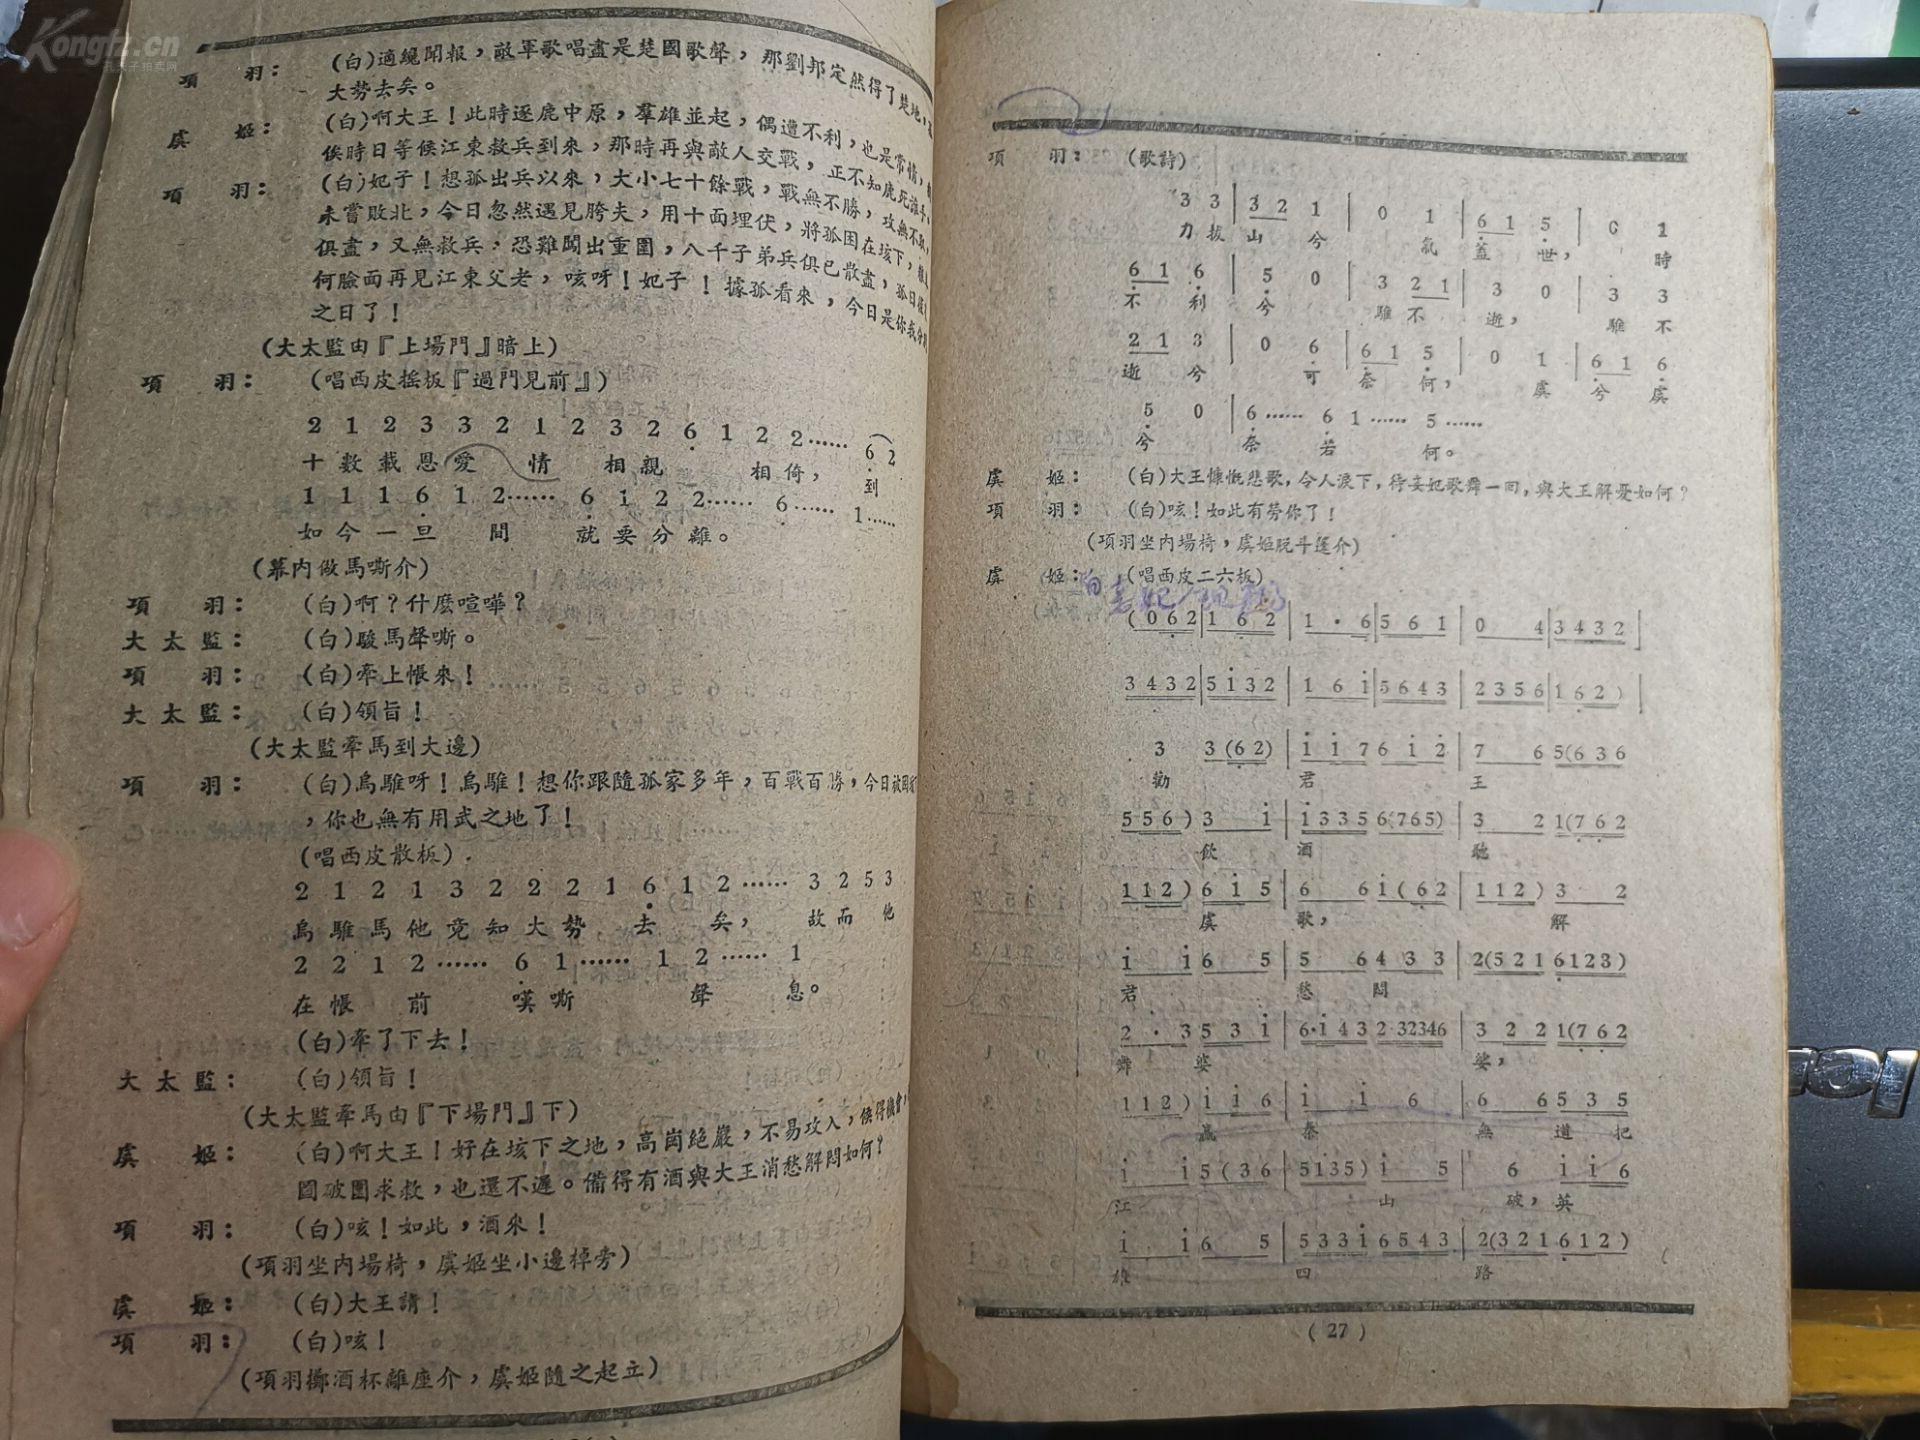 Kongfz.cn
孔夫子拍卖网
項 羽： (白)適纔聞報，敵軍歌唱盡是楚國歌聲，那劉邦定然得了楚地，
大勢去矣。
虞 姬： (白)啊大王！此時逐鹿中原，羣雄並起，偶遭不利，也是常情，
俟時日等候江東救兵到來，那時再與敵人交戰，正不知鹿死誰手。
項 羽： (白)妃子！想孤出兵以來，大小七十餘戰，戰無不勝，攻無不取，
未嘗敗北，今日忽然遇見胯夫，用十面埋伏，將孤困在垓下，糧草
俱盡，又無救兵，恐難闖出重圍，八千子弟兵俱已散盡，孤日後有
何臉面再見江東父老，咳呀！妃子！據孤看來，今日是你我分別
之日了！
(大太監由『上場門』暗上)
項 羽： (唱西皮搖板『過門見前』)
2 1 2 3 3 2 1 2 3 2 6 1 2 2…… (6 2
十數載恩愛 情 相親 相倚， 到
1 1 1 6 1 2…… 6 1 2 2…… 6…… 1……
如今一旦 間 就要分離。
(幕内做馬嘶介)
項 羽： (白)啊？什麼喧嘩？
大太監： (白)駿馬聲嘶。
項 羽： (白)牽上帳來！
大太監： (白)領旨！
(大太監牽馬到大邊)
項 羽： (白)烏騅呀！烏騅！想你跟隨孤家多年，百戰百勝，今日被困
，你也無有用武之地了！
(唱西皮散板)．
2 1 2 1 3 2 2 2 1 6 1 2…… 3 2 5 3
烏騅馬他竟知大勢 去 矣， 故而 他
2 2 1 2…… 6 1…… 1 2…… 1
在帳 前 嘆嘶 聲 息。
(白)牽了下去！
大太監： (白)領旨！
(大太監牽馬由『下場門』下)
虞 姬： (白)啊大王！好在垓下之地，高崗絕巖，不易攻入，候得機會，
圖破圍求救，也還不遲。備得有酒與大王消愁解悶如何？
項 羽： (白)咳！如此，酒來！
(項羽坐内場椅，虞姬坐小邊棹旁)
虞 姬： (白)大王請！
項 羽： (白)咳！
(項羽擲酒杯離座介，虞姬隨之起立)
項 羽： (歌詩)
3 3 | 3 2 1 | 0 1 | 6 1 5 | 0 1
力拔 山 兮 氣 蓋 世， 時
6 1 6 | 5 0 | 3 2 1 | 3 0 | 3 3
不 利 兮 騅 不 逝， 騅 不
2 1 3 | 0 6 | 6 1 5 | 0 1 | 6 1 6
逝 兮 可 奈 何， 虞 兮 虞
5 0 | 6…… 6 1…… 5……
兮 奈 若 何。
虞 姬： (白)大王慷慨悲歌，令人淚下，待妾妃歌舞一回，與大王解憂如何？
項 羽： (白)咳！如此有勞你了！
(項羽坐内場椅，虞姬脱斗篷介)
虞 姬： (唱西皮二六板)
(0 6 2 | 1 6 2 | 1 · 6 | 5 6 1 | 0 4 | 3 4 3 2 |
3 4 3 2 | 5 1 3 2 | 1 6 1 | 5 6 4 3 | 2 3 5 6 | 1 6 2 ) |
3 3 (6 2) | 1 1 7 6 1 2 | 7 6 5(6 3 6
勸 君 王
5 5 6 ) 3 1 | 1 3 3 5 6(7 6 5) | 3 2 1(7 6 2
飲 酒 聽
1 1 2 ) 6 1 5 | 6 6 1 ( 6 2 | 1 1 2 ) 3 2
虞 歌， 解
1 1 6 5 | 5 6 4 3 3 | 2(5 2 1 6 1 2 3 )
君 愁 悶
2 · 3 5 3 1 | 6·1 4 3 2 32346 | 3 2 2 1(7 6 2
舞 婆 娑，
1 1 2 ) 1 1 6 | 1 1 6 | 6 6 5 3 5
嬴 秦 無 道 把
1 1 5 ( 3 6 | 5 1 3 5 ) 1 5 | 6 1 1 6
江 山 破， 英
1 1 6 5 | 5 3 3 1 6 5 4 3 | 2(3 2 1 6 1 2 )
雄 四 路
( 27 )